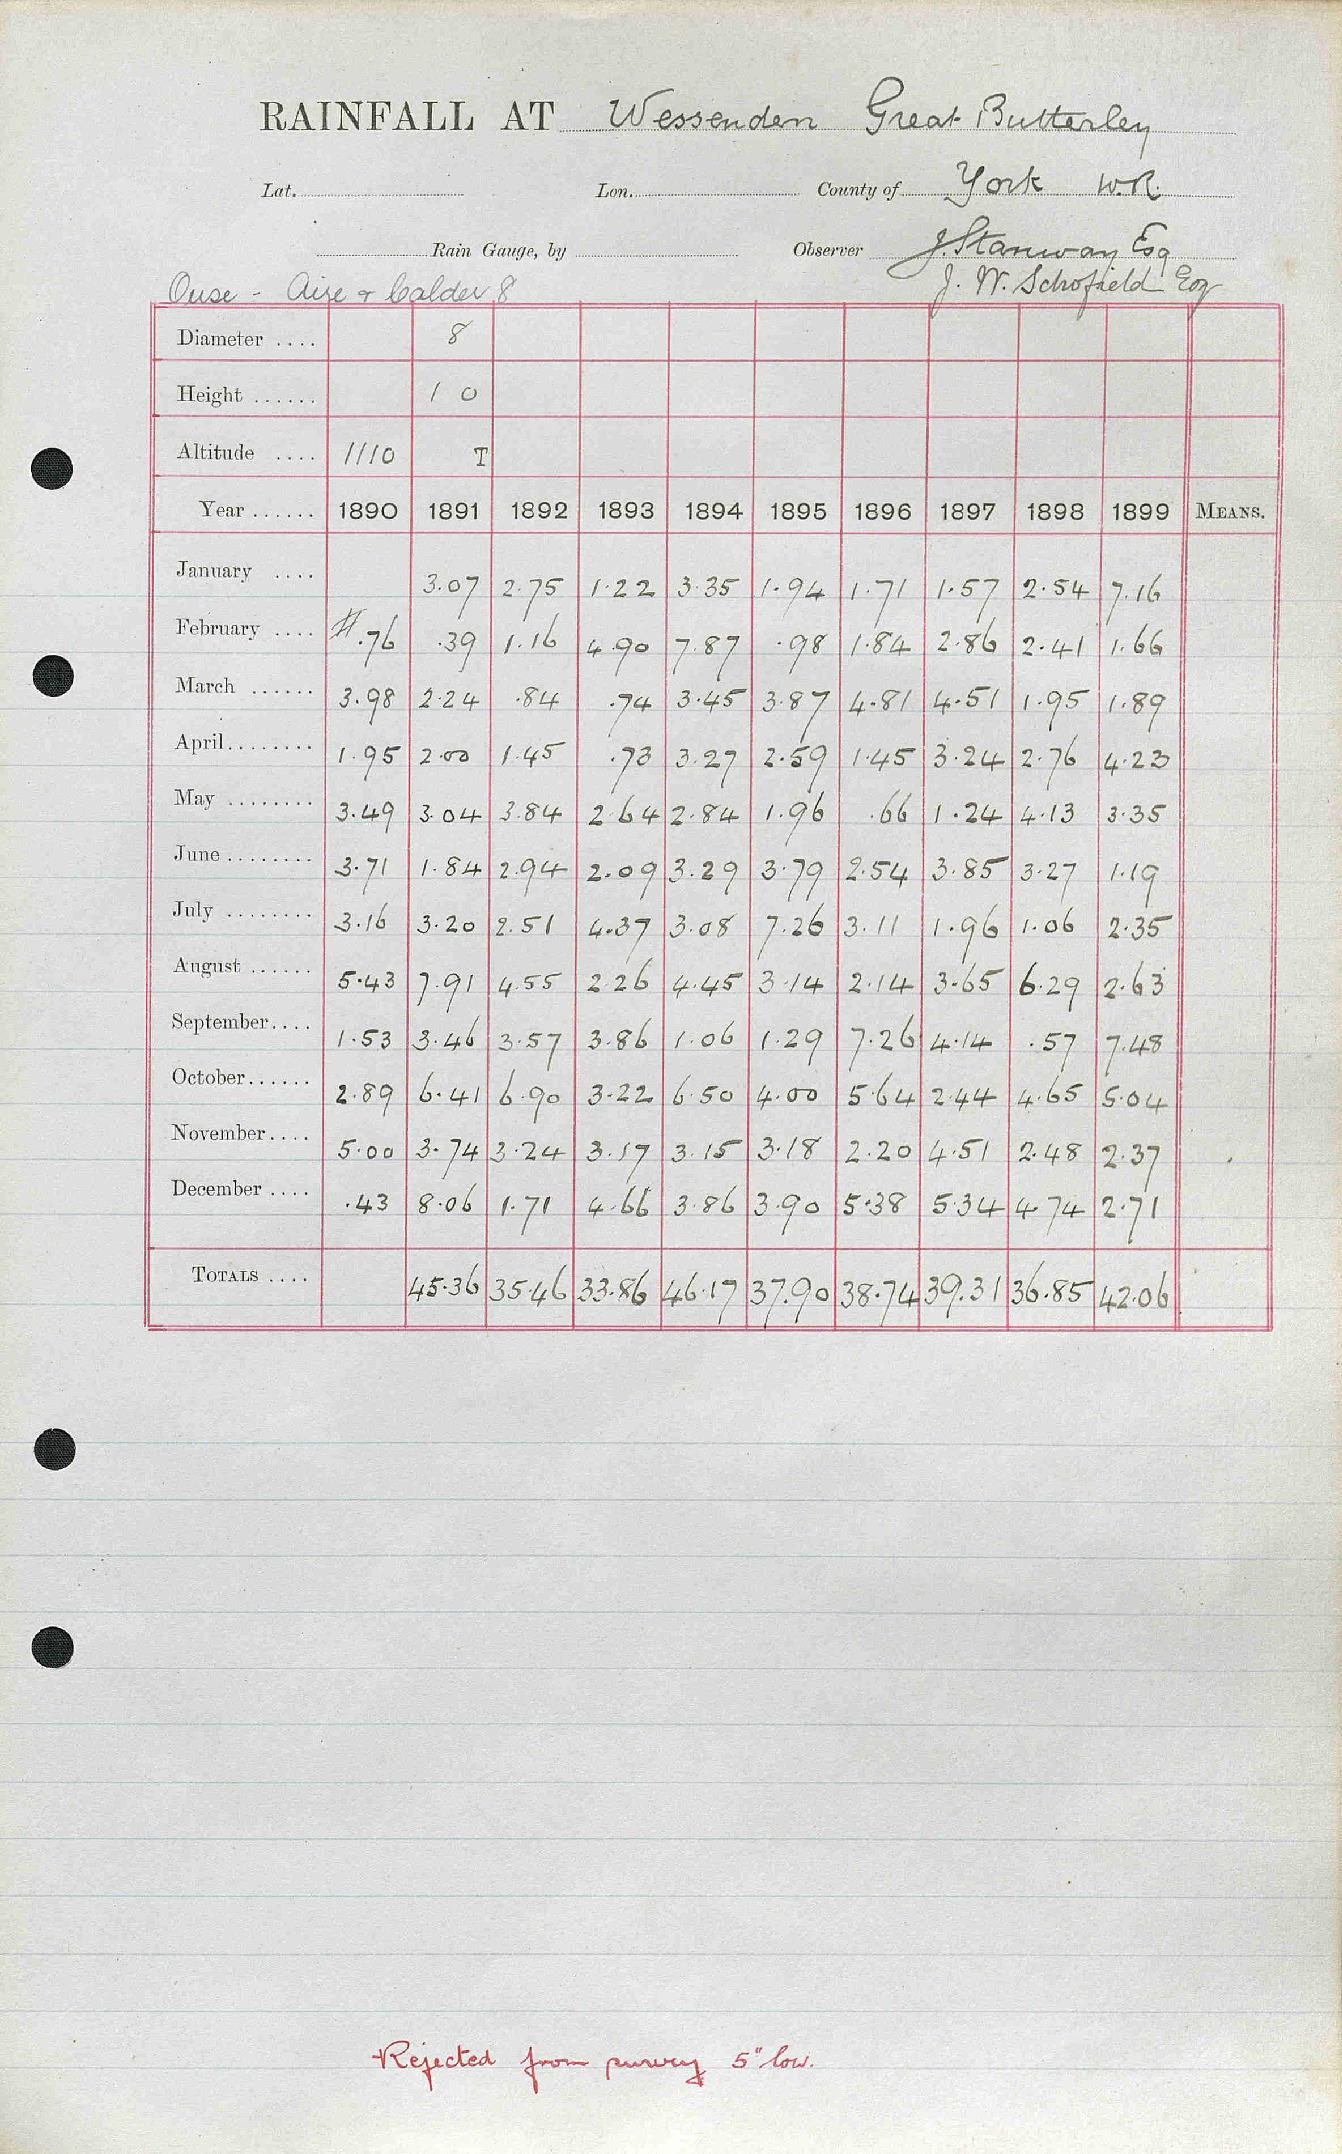 RAINFALL AT Wessenden Great Butterley
Lat. Lon. County of York W.R.
Rain Gauge, by Observer J. Stanway Esq
Ouse - Aire & Calder 8 J. W. Schofield Esq
Diameter .... 8
Height ...... 1 0
Altitude .... 1110 T
Year ...... 1890 1891 1892 1893 1894 1895 1896 1897 1898 1899 MEANS.
January .... 3.07 2.75 1.22 3.35 1.94 1.71 1.57 2.54 7.16
February .... #.76 .39 1.16 4.90 7.87 .98 1.84 2.86 2.41 1.66
March ...... 3.98 2.24 .84 .74 3.45 3.87 4.81 4.51 1.95 1.89
April........ 1.95 2.00 1.45 .73 3.27 2.59 1.45 3.24 2.76 4.23
May ........ 3.49 3.04 3.84 2.64 2.84 1.96 .66 1.24 4.13 3.35
June ........ 3.71 1.84 2.94 2.09 3.29 3.79 2.54 3.85 3.27 1.19
July ........ 3.16 3.20 2.51 4.37 3.08 7.26 3.11 1.96 1.06 2.35
August ...... 5.43 7.91 4.55 2.26 4.45 3.14 2.14 3.65 6.29 2.63
September.... 1.53 3.46 3.57 3.86 1.06 1.29 7.26 4.14 .57 7.48
October...... 2.89 6.41 6.90 3.22 6.50 4.00 5.64 2.44 4.65 5.04
November.... 5.00 3.74 3.24 3.17 3.15 3.18 2.20 4.51 2.48 2.37
December .... .43 8.06 1.71 4.66 3.86 3.90 5.38 5.34 4.74 2.71
TOTALS .... 45.36 35.46 33.86 46.17 37.90 38.74 39.31 36.85 42.06
Rejected from survey 5" low.